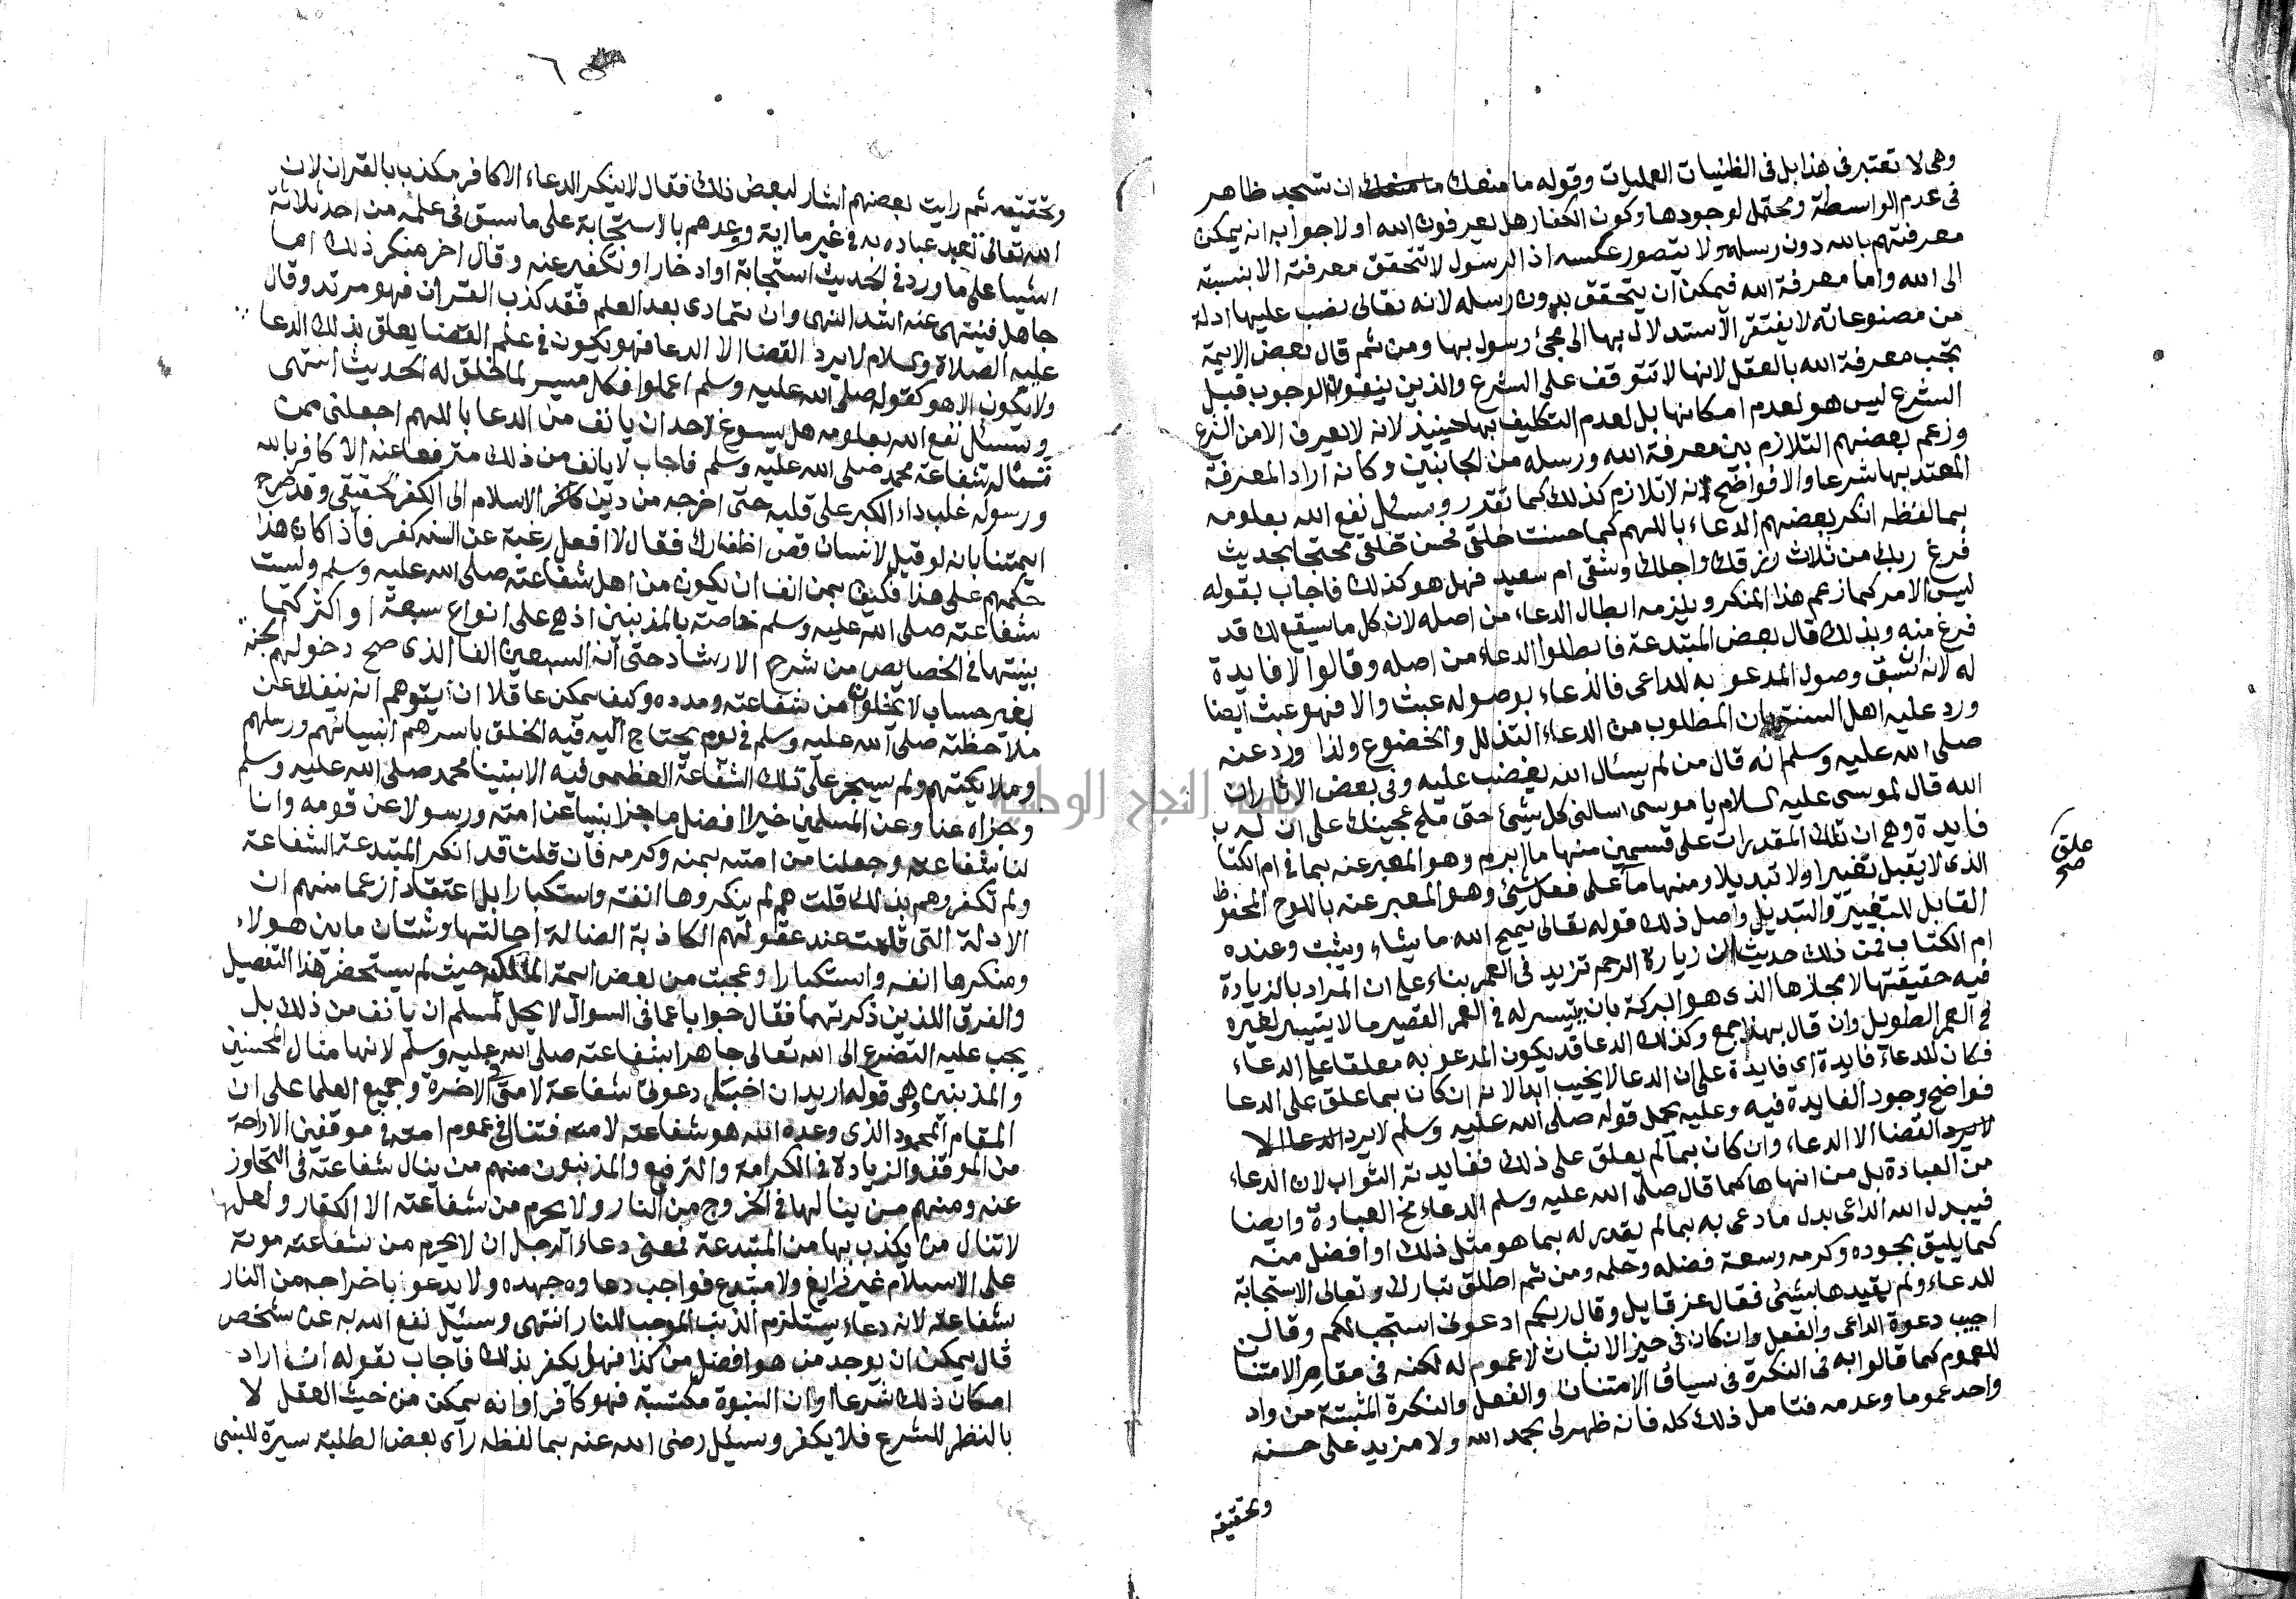 وهى لا تعتبر فى هذا بل فى الظنيات العمليات وقوله ما منعك ما منعك ان تسجد ظاهر
فى عدم الواسطة ومحتمل لوجودها وكون الكفار هل يعرفون الله او لا جوابه انه يمكن
معرفتهم بالله دون رسله ولا يتصور عكسه اذ الرسول لا تتحقق معرفته الا بنسبته
الى الله واما معرفة الله فيمكن ان يتحقق بدون رسله لانه تعالى نصب عليها ادلة
من مصنوعاته لا يفتقر الاستدلال بها الى مجئ رسول بها ومن ثم قال بعض الايمة
تجب معرفة الله بالعقل لانها لا تتوقف على الشرع والذين ينفون الوجوب قبل
الشرع ليس هو لعدم امكانها بل لعدم التكليف بها حينيذ لانه لا يعرف الا من الشرع
وزعم بعضهم التلازم بين معرفة الله ورسله من الجانبين وكانه اراد المعرفة
المعتد بها شرعا والا فواضح انه لا تلازم كذلك كما تقدر وسئل نفع الله بعلومه
بما لفظه انكر بعضهم الدعاء باللهم كما حسنت خلقى فحسن خلقى محتجا بحديث
فرغ ربك من ثلاث رزقك واجلك وشقى ام سعيد فهل هو كذلك فاجاب بقوله
ليس الامر كما زعم هذا المنكر ويلزمه ابطال الدعاء من اصله لان كل ما سيقع لك قد
فرغ منه وبذلك قال بعض المبتدعة فابطلوا الدعاء من اصله وقالوا لا فايدة
له لانه ان سبق وصول المدعو به للداعى فالدعاء بوصوله عبث والا فهو عبث ايضا
ورد عليه اهل السنة بان المطلوب من الدعاء التذلل والخضوع ولذا ورد عنه
صلى الله عليه وسلم انه قال من لم يسئال الله يغضب عليه وفى بعض الاثار ان
الله قال لموسى عليه السلام يا موسى اسالنى كل شيئ حتى ملح عجينك على ان له
فايدة وهى ان تلك المقدرات على قسمين منها ما ابرم وهو المعبر عنه بما فى ام الكتاب
الذى لا يقبل تغييرا ولا تبديلا ومنها ما علق على فعل شيئ وهو المعبر عنه باللوح المحفوظ
القابل للتغيير والتبديل واصل ذلك قوله تعالى يمح الله ما يشاء ويثبت وعنده
ام الكتاب فمن ذلك حديث ان زيارة الرحم تزيد فى العمر بناء على ان المراد بالزيادة
فيه حقيقتها لا مجازها الذى هو البركة بان يتيسر له فى العمر القصير ما لا يتيسر لغيره
فى العمر الطويل وان قال بهذا جمع وكذلك الدعا قد يكون المدعو به معلقا على الدعاء
فكان للدعاء فايدة اى فايدة على ان الدعا لا يخيب ابدا لانه ان كان بما علق على الدعا
فواضح وجود الفايدة فيه وعليه يحمل قوله صلى الله عليه وسلم لا يرد الدعا الا
لا يرد القضا الا الدعاء وان كان بما لم يعلق على ذلك ففايدته الثواب لان الدعاء
من العبادة بل من انهاها كما قال صلى الله عليه وسلم الدعاء مخ العبادة وايضا
فيبدل الله الداعى بدل ما دعى به بما لم يقدر له بما هو مثل ذلك او افضل منه
كما يليق بجوده وكرمه وسعة فضله وحلمه ومن ثم اطلق تبارك وتعالى الاستجابة
للدعاء ولم يقيدها بشيئى فقال عز قايل وقال ربكم ادعونى استجب لكم وقال
اجيب دعوة الداعى والفعل وان كان فى حيز الاثبات لا عموم له لكنه فى مقام الامتنا
للعموم كما قالوا به فى النكرة فى سياق الامتنان والفعل والنكرة المثبتة من واد
واحد عموما وعدمه فتامل ذلك كله فانه ظهر لى بحمد الله ولا مزيد على حسنه
وتحقيقه
علق
صح
٦
وتحقيقه ثم رايت بعضهم اشار لبعض ذلك فقال لا ينكر الدعاء الا كافر مكذب بالقران لان
الله تعالى تعبد عباده به فى غير ما اية ووعدهم بالاستجابة على ما سبق فى علمه من احد ثلاثة
اشيا على ما ورد فى الحديث استجابة او ادخار او تكفير عنه وقال اخر منكر ذلك اما
جاهل فينتهى عنه اشد النهى وان تمادى بعد العلم فقد كذب القران فهو مرتد وقال
عليه الصلاة والسلام لا يرد القضا الا الدعا فهو يكون فى علم القضا يعلق بذلك الدعا
ولا يكون الا هو كقوله صلى الله عليه وسلم اعملوا فكل ميسر لما خلق له الحديث انتهى
وسئل نفع الله بعلومه هل يسوغ لاحد ان يانف من الدعا باللهم اجعلنى ممن
تناله شفاعة محمد صلى الله عليه وسلم فاجاب لا يانف من ذلك مترفعا عنه الا كافر بالله
ورسوله غلب داء الكبر على قلبه حتى اخرجه من دين الاسلام الى الكفر الحقيقى وقد صرح
ايمتنا بانه لو قيل لانسان قص اظفارك فقال لا افعل رغبة عن السنه كفر فاذا كان هذا
حكمهم على هذا فكيف بمن انف ان يكون من اهل شفاعته صلى الله عليه وسلم وليست
شفاعته صلى الله عليه وسلم خاصة بالمذنبين اذ هى على انواع سبعة او اكثر كما
بينتها فى الخصايص من شرح الارشاد حتى ان السبعين الفا الذى صح دخولهم الجنة
بغير حساب لا يخلون من شفاعته ومدده وكيف يمكن عاقلا ان يتوهم انه ينفك عن
ملاحظته صلى الله عليه وسلم فى يوم يحتاج اليه فيه الخلق باسرهم انبيائهم ورسلهم
وملايكتهم ولم يسجر على تلك الشفاعة العظمى فيه الا نبينا محمد صلى الله عليه وسلم
وجزاه عنا وعن المسلمين خيرا افضل ما جزا نبيا عن امته ورسولا عن قومه وانا
لنا شفاعته وجعلنا من امته بمنه وكرمه فان قلت قد انكر المبتدعة الشفاعة
ولم تكفروهم بذلك قلت هم لم ينكروها انفة واستكبارا بل اعتقادا زعما منهم ان
الادلة التى قامت عند عقولهم الكاذبة الضالة احالتها وشتان ما بين هولاء
ومنكرها انفه واستكبارا وعجبت من بعض ايمة المالكية حيث لم يستحضر هذا التفصيل
والفرق اللذين ذكرتهما فقال جوابا عما فى السوال لا يحل لمسلم ان يانف من ذلك بل
يجب عليه التضرع الى الله تعالى جاهرا بشفاعته صلى الله عليه وسلم لانها منال المحسنين
والمذنبين وهى قوله اريد ان اختبئ دعوتى شفاعة لامتى فى الاخرة وجميع العلما على ان
المقام المحمود الذى وعده الله هو شفاعته لامته فتنال فى عموم امته فى موقفين الاراحة
من الموقف والزيادة فى الكرامة والترفيع والمذنبون منهم من ينال شفاعته فى التجاوز
عنه ومنهم من ينالها فى الخروج من النار ولا يحرم من شفاعته الا الكفار ولعلها
لا تنال من يكذب بها من المبتدعة فمعنى دعاء الرجل ان لا يحرم من شفاعته موته
على الاسلام غير زايغ ولا مبتدع فواجب دعاوه جهده ولا يدعو باخراجه من النار
شفاعة لانه دعاء يستلزم الذنب الموجب للنار انتهى وسئيل نفع الله به عن شخص
قال يمكن ان يوجد من هو افضل من كذا فهل يكفر بذلك فاجاب بقوله ان اراد
امكان ذلك شرعا او ان النبوة مكتسبة فهو كافر او انه يمكن من حيث العقل لا
بالنظر للشرع فلا يكفر وسئيل رضى الله عنه بما لفظه رآى بعض الطلبة سيرة للنبى
جامعة النجاح الوطنية